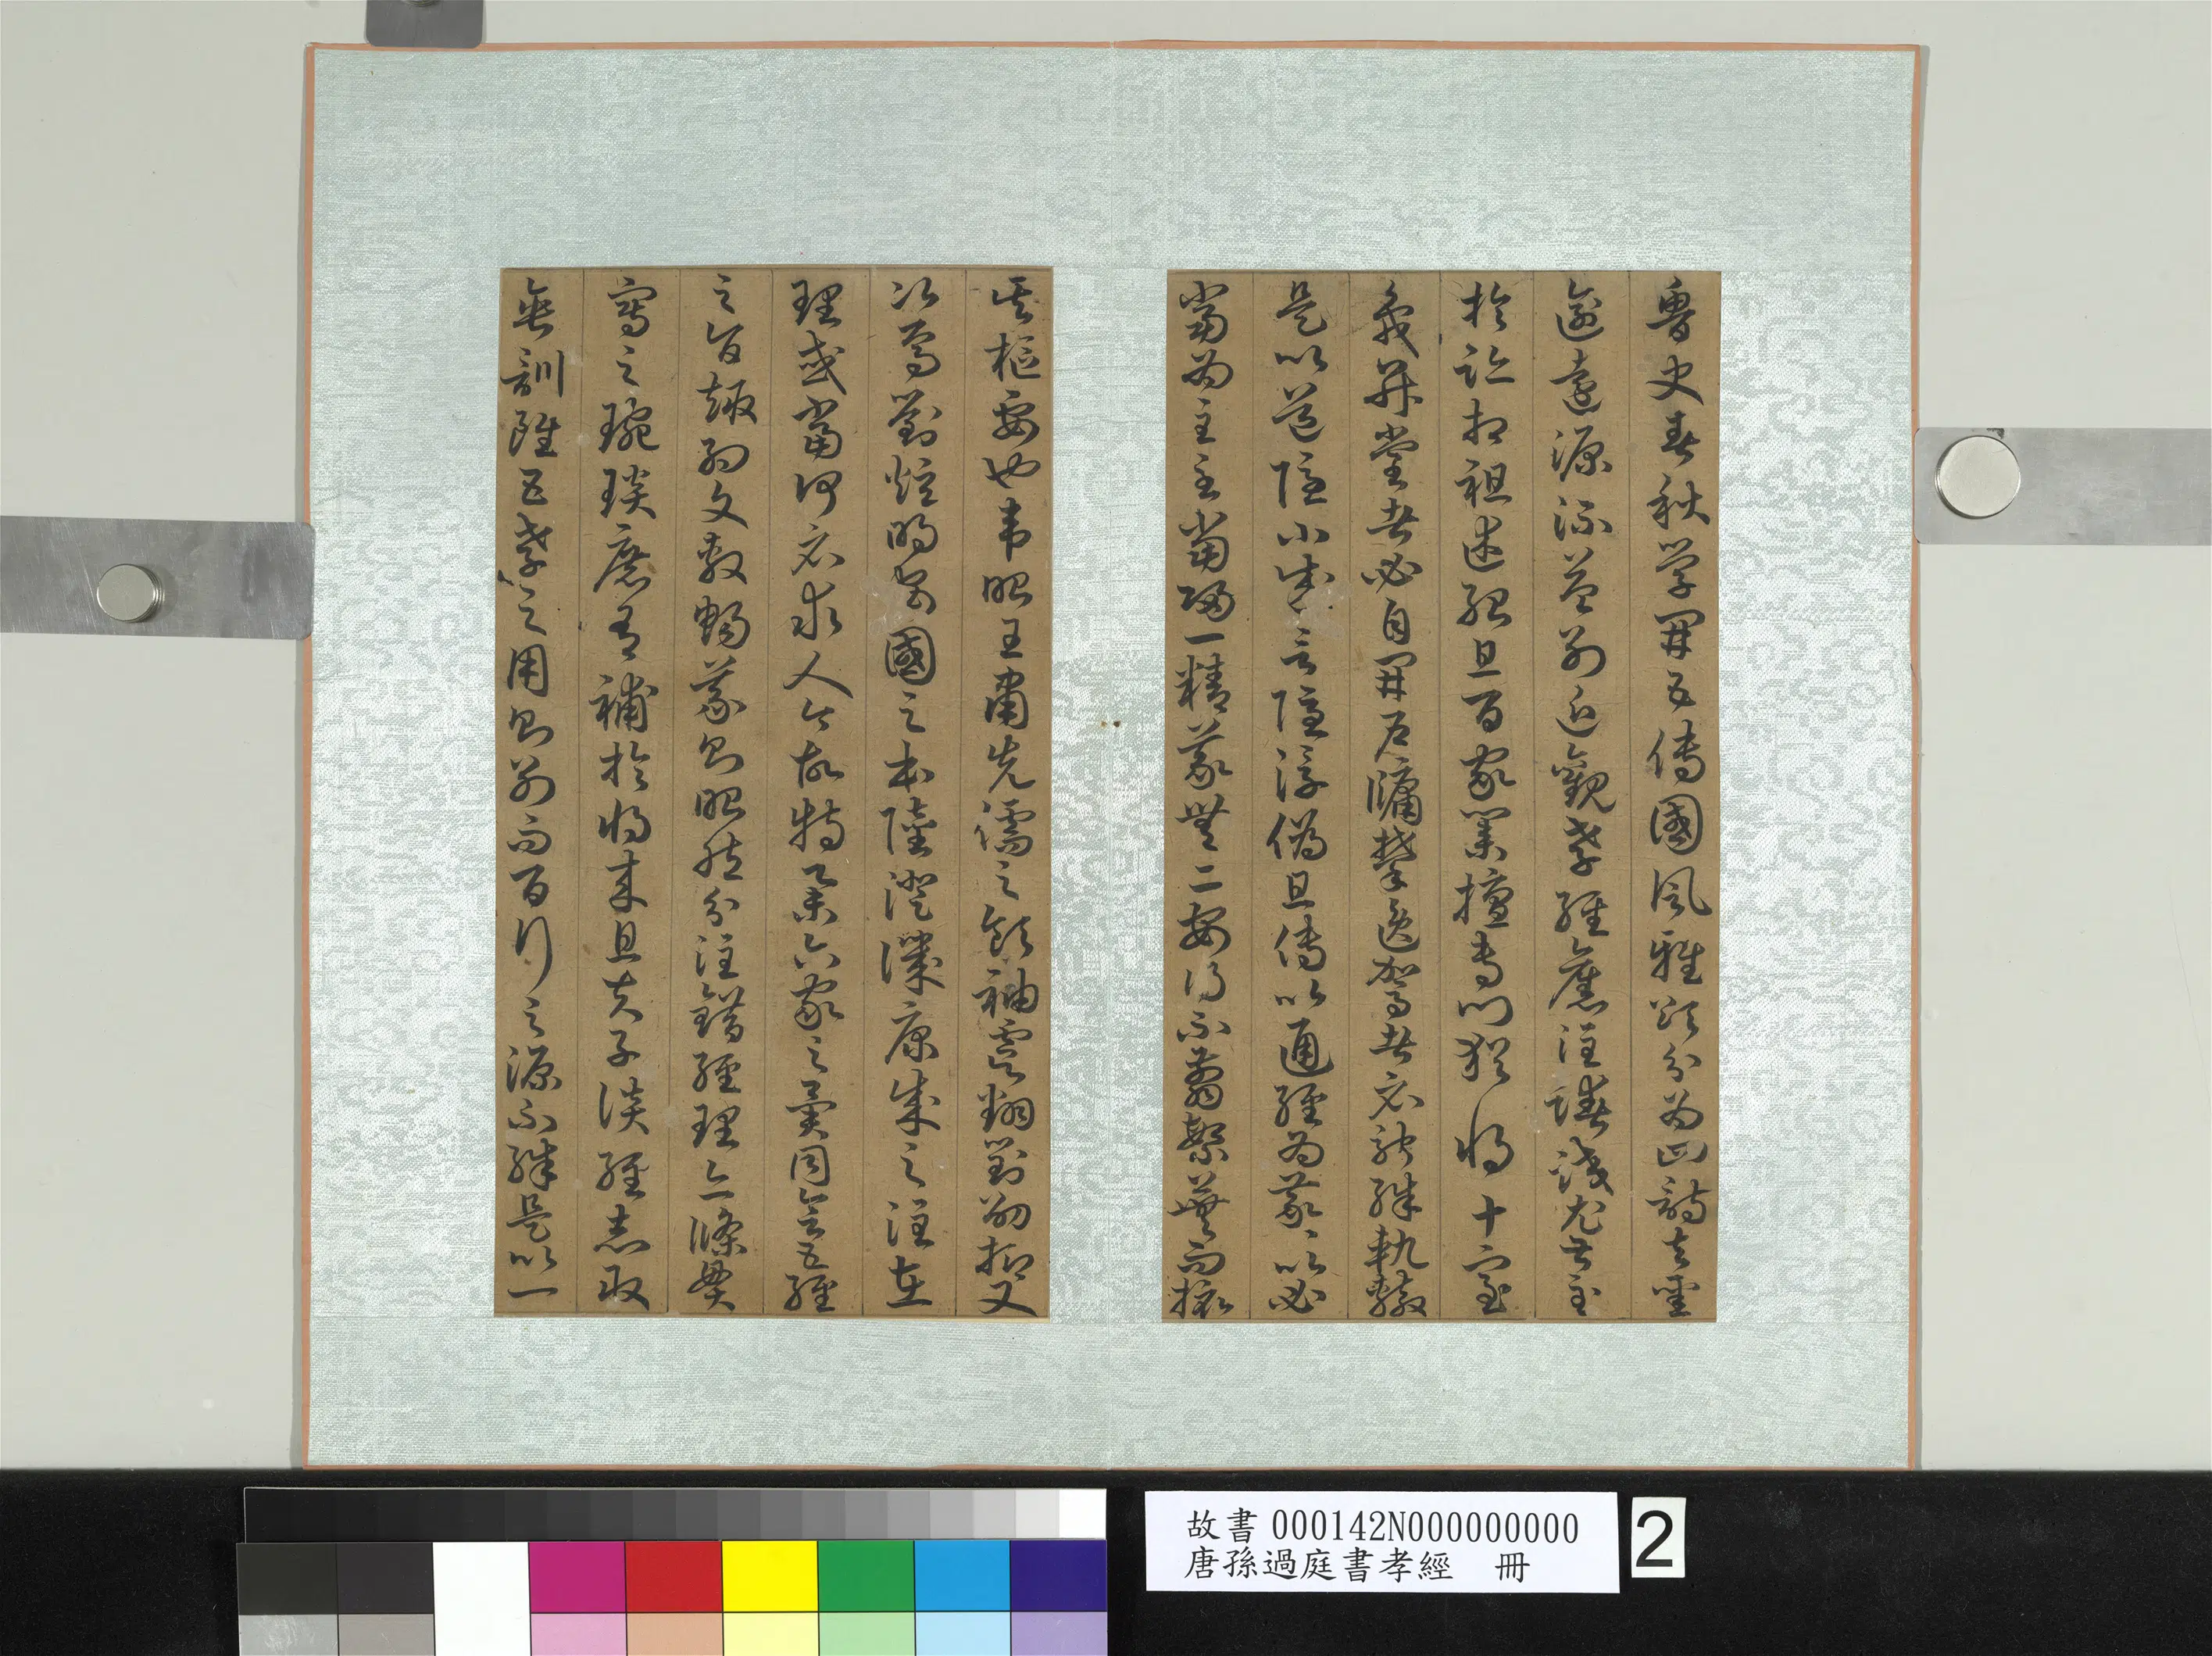 魯史春秋學開五傳國風雅頌分為四詩去聖
逾遠源流益別近觀孝經舊注尤甚至
於跡相祖述殆且百家業擅專門猶將十室
希升堂者必自開戶牖攀逸駕者必騁殊軌轍
是以道隱小成言隱浮偽且傳以通經為義〻以必
當為主至當歸一精義無二安得不翦繁蕪而撮
其樞要也韋昭王肅先儒之領袖虞翻劉劭抑又
次焉劉炫明安國之本陸澄譏康成之注在
理或當何必求人今故特舉六家之異同會五經
之旨趣約文敷暢義則昭然分注錯經理亦條貫
寫之琬琰庶有補於將來且夫子談經志取
垂訓雖五孝之用則別而百行之源不殊是以一
故書 000142N000000000
唐孫過庭書孝經 冊
2